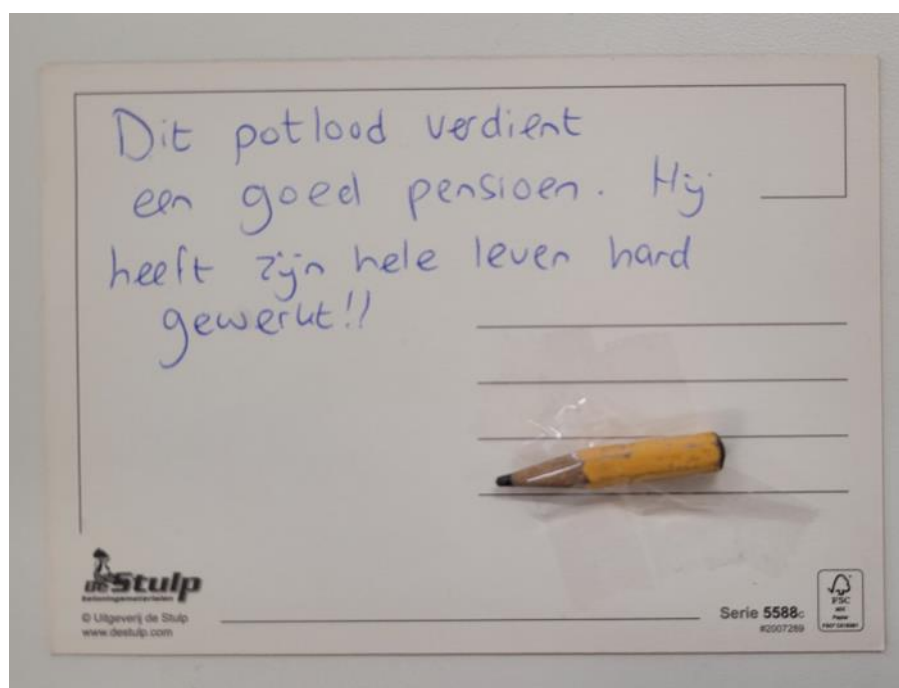 Dit potlood verdient
een goed pensioen. Hij
heeft zijn hele leven hard
gewerkt!!
de Stulp
beloningsmaterialen
© Uitgeverij de Stulp
www.destulp.com
Serie 5588c
#2007289
FSC